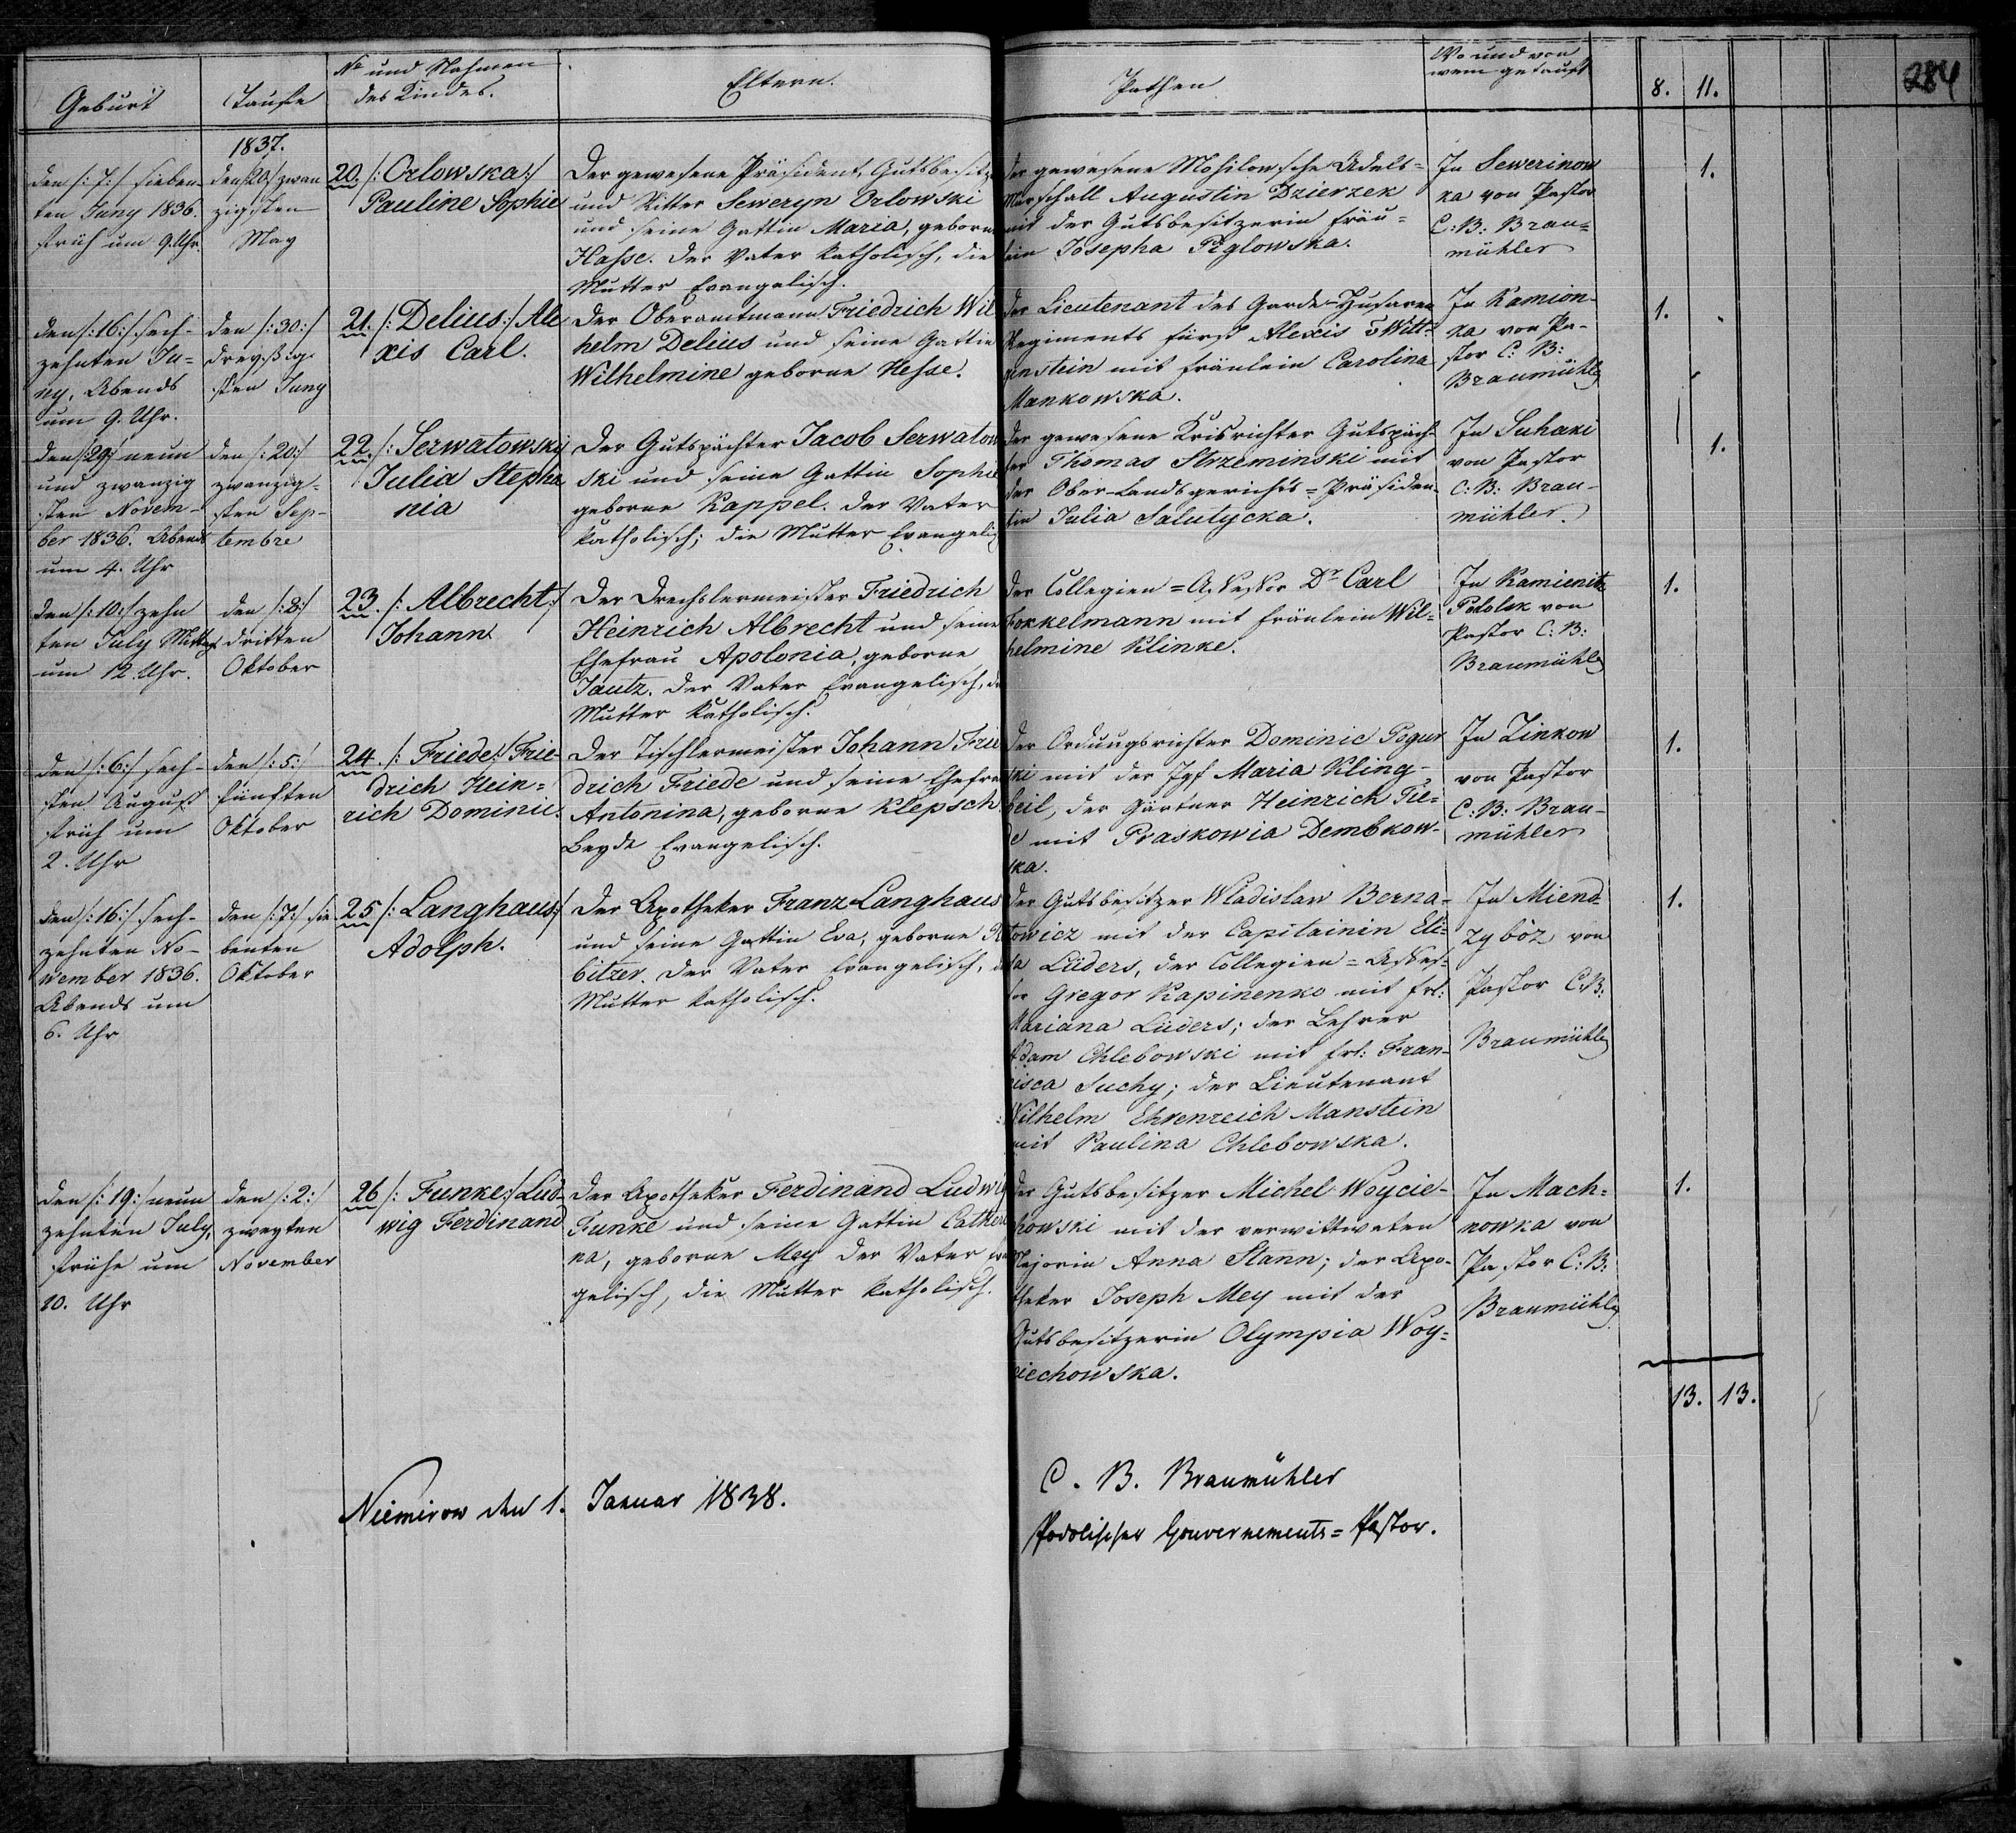 Geburt
Taufe
No und Nahmen
des Kindes.
Eltern.
Pathen
Wo und von
wem getauft
8. 11.
284
1837.
den /:7:/ sieben-
ten Juny 1836.
früh um 9. Uhr.
den /:20:/ zwan
zigsten
May
20. /:Orlowska:/
Pauline Sophie
Der gewesene Präsident, Gutsbesitz
und Ritter Seweryn Orlowski
und seine Gattin Maria, geborne
Hasse. Der Vater katholisch, die
Mutter Evangelisch.
der gewesene Mohilowsche Adels-
Marschall Augustin Dzierzek
mit der Gutsbesitzerin Fräu-
lein Josepha Piglowska.
In Sewerinow
ka von Pastor
C: B: Brau-
mühler
1.
den /:16:/ sech-
zehnten Ju-
ny, Abends
um 9. Uhr.
den /:30:/
dreyßig-
sten Juny
21. /:Delius:/ Ale
xis Carl.
Der Oberamtmann Friedrich Wil
helm Delius und seine Gattin
Wilhelmine geborne Hesse.
Der Lieutenant des Garde-Husaren
Regiments Fürst Alexis v Witt-
genstein mit Fräulein Carolina
Mankowska.
In Kamion-
ka von Pa-
stor C: B:
Braumühler
1.
den /:29:/ neun
und zwanzig
sten Novem-
ber 1836. Abends
um 4. Uhr
den /:20:/
zwanzig-
sten Sep-
tembre
22. /:Serwatowsky
Julia Stepha
nia
Der Gutspächter Jacob Serwatow
ski und seine Gattin Sophie
geborne Kappel. Der Vater
katholisch; die Mutter Evangelis
der gewesene Krisrichter Gutspäch-
ter Thomas Strzeminski mit
der Ober-Landsgerichts-Präsiden-
tin Julia Salutycka.
In Suhaki
von Pastor
C: B: Brau-
mühler.
1.
den /:10:/ zehn
ten July Mittag
um 12. Uhr.
den /:8:/
dritten
Oktober
23. /:Albrecht:/
Johann
Der Drechslermeister Friedrich
Heinrich Albrecht und seine
Ehefrau Apolonia, geborne
Jautz. Der Vater Evangelisch, di
Mutter katholisch.
der Collegien-Assessor Dr Carl
Fokkelmann mit Fräulein Wil-
helmine Klinke.
In Kamienitz
Podolsk von
Pastor C: B:
Braumühler
1.
den /:6:/ sech-
sten August
früh um
2. Uhr
den /:5:/
fünften
Oktober
24. /:Friede:/ Frie-
drich Hein-
rich Dominic.
Der Tischlermeister Johann Frie
drich Friede und seine Ehefra
Antonina, geborne Klepsch
Beyde Evangelisch.
der Ordnungsrichter Dominic Pogur
ski mit der Jgf Maria Kling-
beil, der Gärtner Heinrich Tie-
de mit Praskowia Dembkow-
ska.
In Zinkow
von Pastor
C: B: Brau-
mühler
1.
den /:16:/ sech-
zehnten No-
vember 1836.
Abends um
6. Uhr
den /:7:/ sie
benten
Oktober
25 /:Langhaus:/
Adolph.
Der Apotheker Franz Langhaus
und seine Gattin Eva, geborne
bitzer. Der Vater Evangelisch, d
Mutter katholisch.
Der Gutsbesitzer Wladislaw Berna-
towicz mit der Capitainin Eli-
sa Lüders, der Collegien-Asses-
sor Gregor Kapinenko mit Frl:
Mariana Lüders; der Lehrer
Adam Chlebowski mit Frl: Fran-
cisca Suchy; der Lieutenant
Wilhelm Ehrenreich Manstein
mit Paulina Chlebowska.
In Miend-
zyboz von
Pastor C: B:
Braumühler
1.
den /:19:/ neun
zehnten July,
frühe um
10. Uhr
den /:2:/
zweyten
November
26 /:Funke:/ Lud-
wig Ferdinand
Der Apotheker Ferdinand Ludwig
Funke und seine Gattin Cathari
na, geborne Mey Der Vater evan
gelisch, die Mutter katholisch.
Der Gutsbesitzer Michel Woycie-
howski mit der verwittweten
Majorin Anna Stann; der Apo-
theker Joseph Mey mit der
Gutsbesitzerin Olympia Woy-
ciechowska.
In Mach-
nowka von
Pastor C: B:
Braumühler
1.
13. 13.
Niemirow den 1. Januar 1838.
C. B. Braumühler
Podolischer Gouvernements-Pastor.